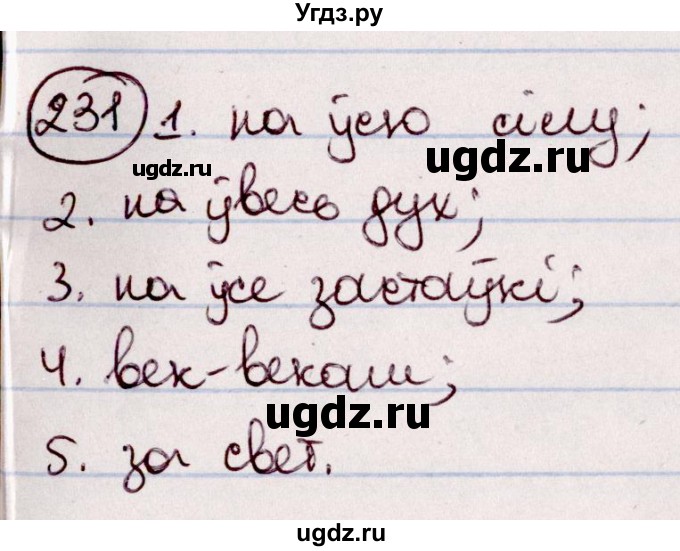 Угдз.ру
231 1. на ўсю сілу;
ugdz.ru
2. на ўвесь дух;
3. на ўсе застаўкі;
4. век-векам;
ugdz.ru
5. за свет.
ugdz.ru